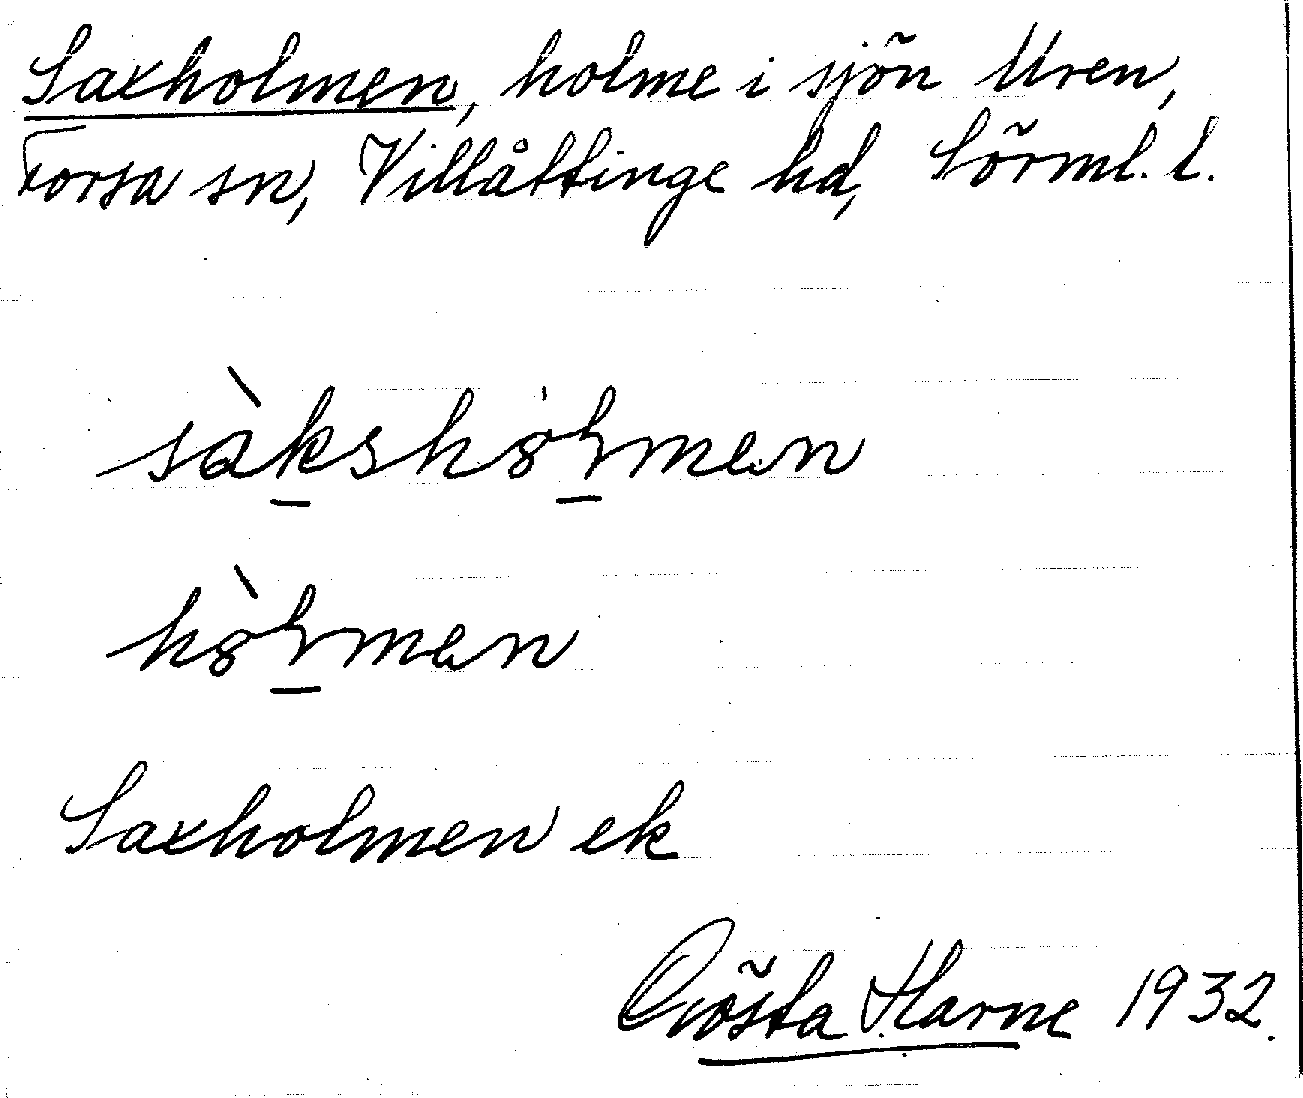 Saxholmen, holme i sjön Uren,
Forsa sn, Villåttinge hd, Sörml. l.
sàkshólmen
hòlmen
Saxholmen ek
Gösta Harne 1932.